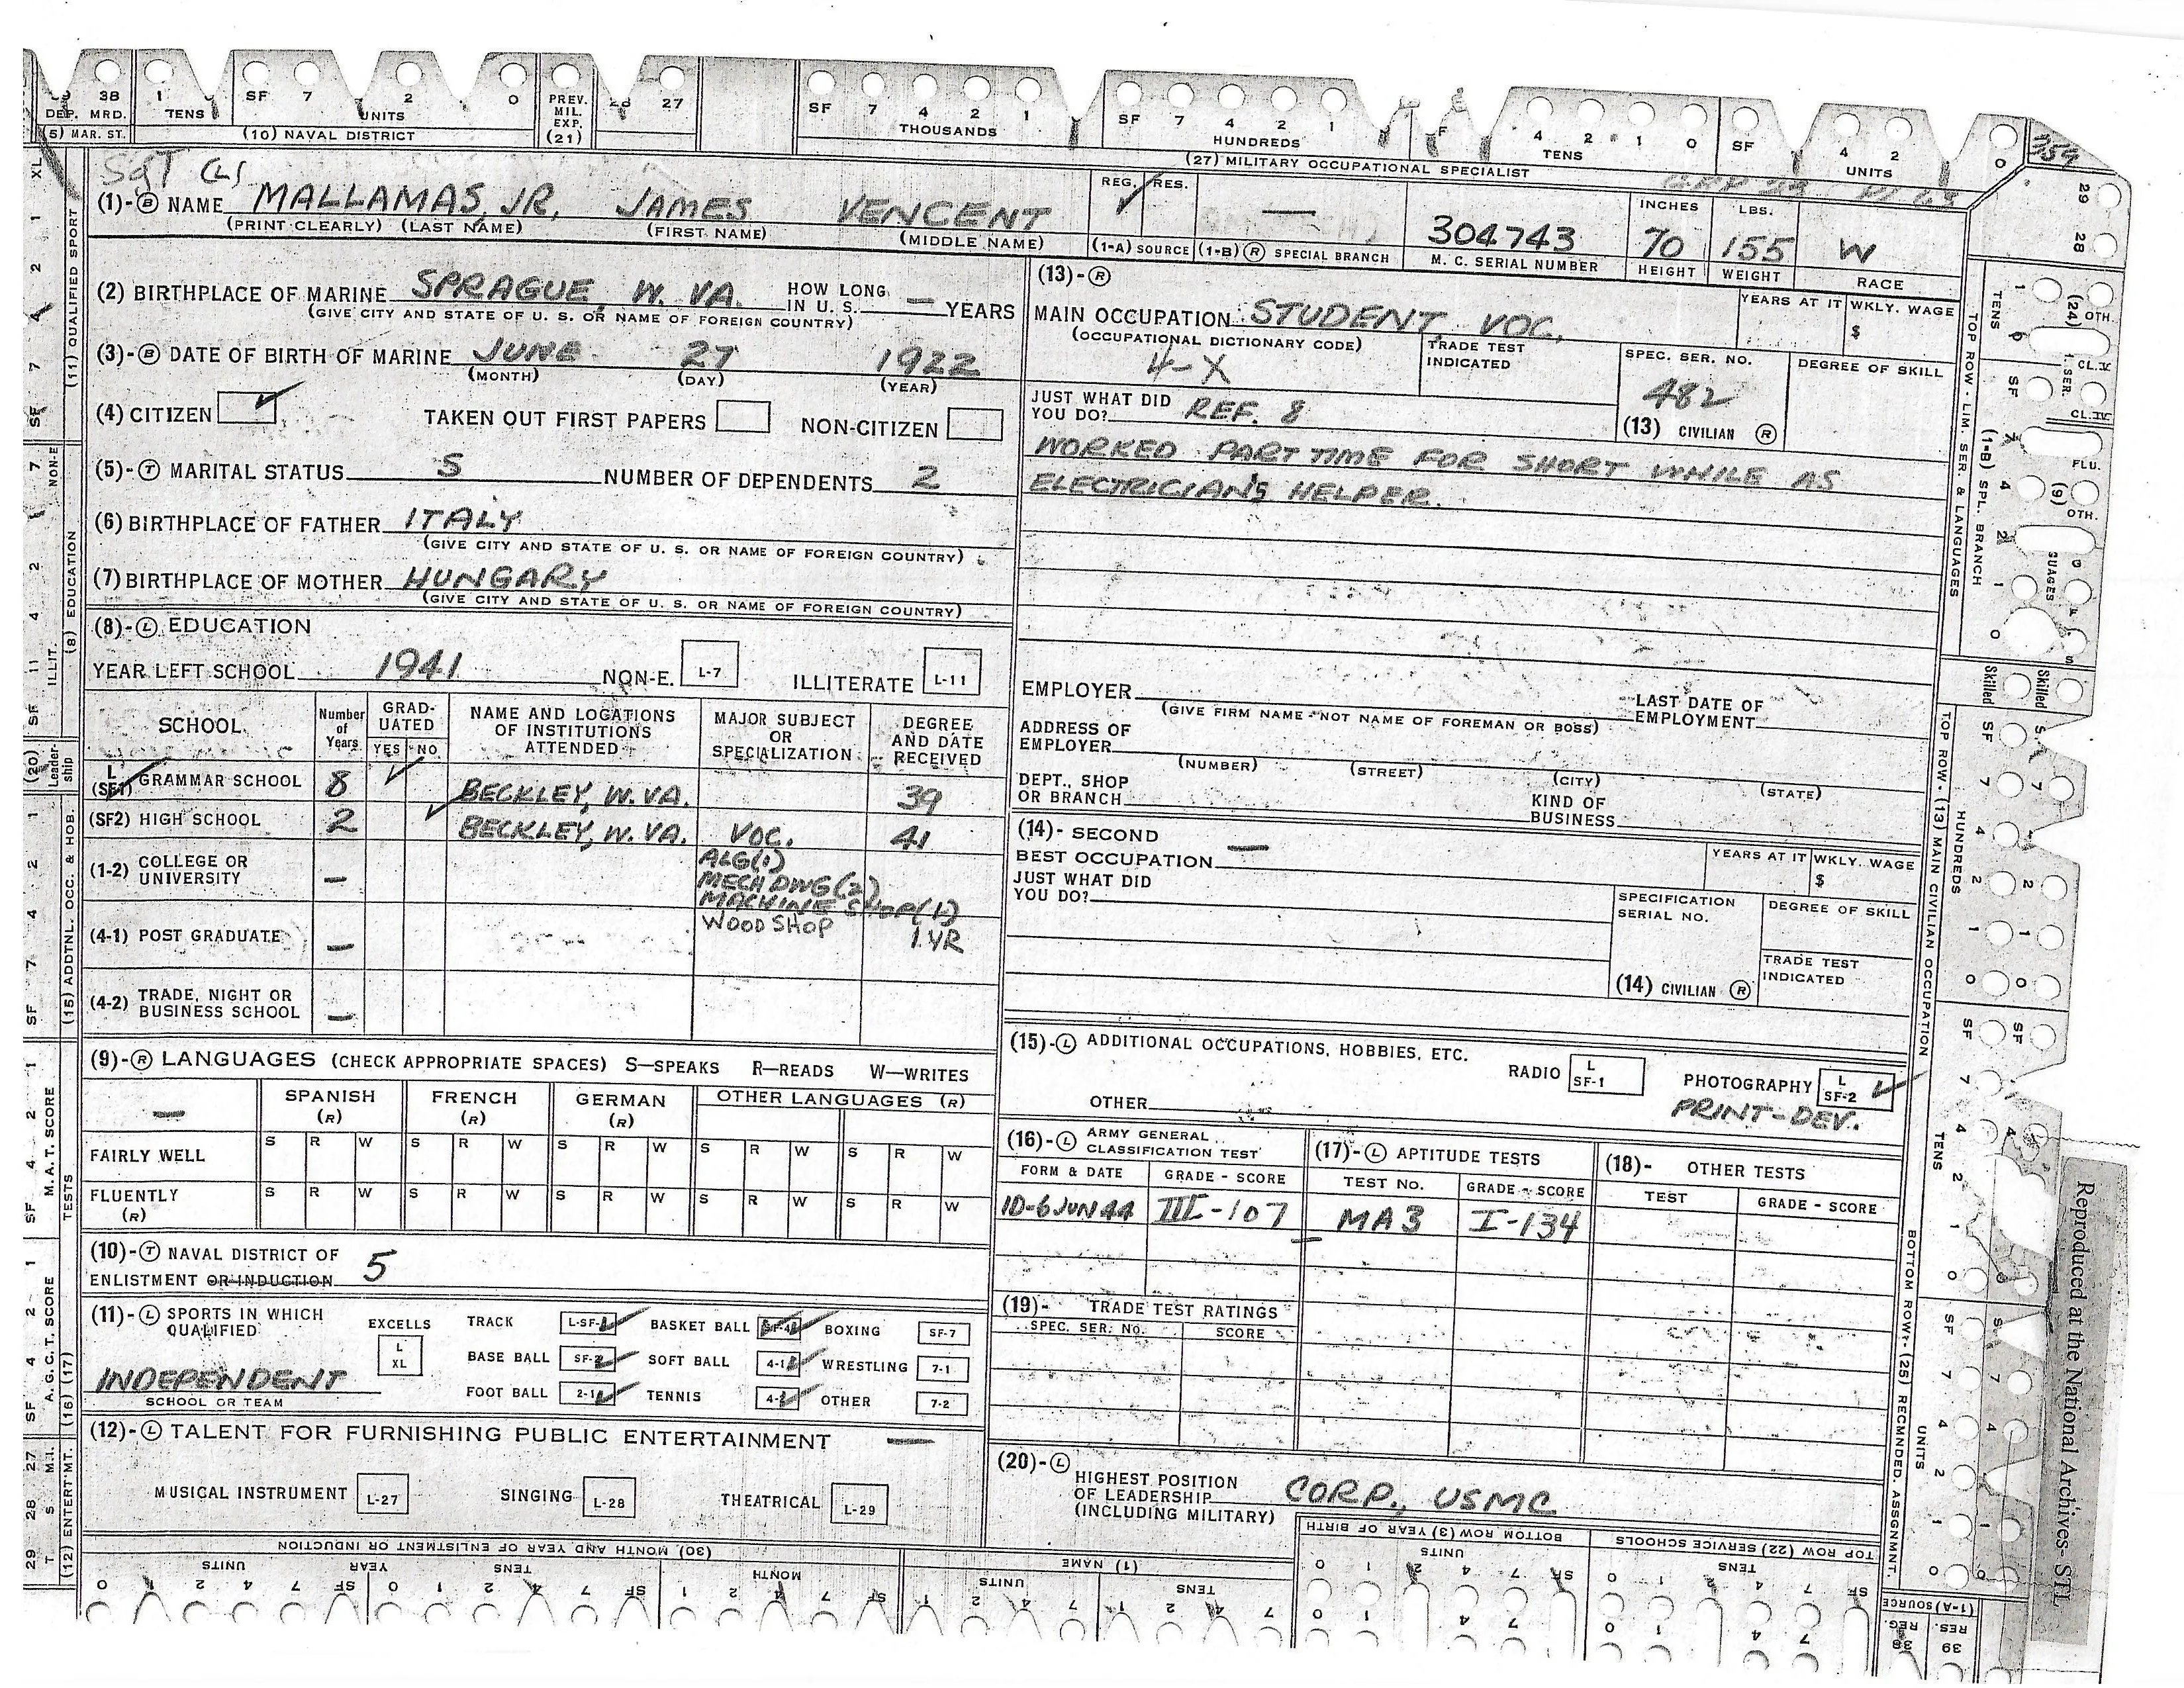 38 1 SF 7 2 0 PREV. MIL. EXP. (21) 27 SF 7 4 2 1 SF 7 4 2 1 4 2 1 0 SF 4 2 0
DEP. MRD. TENS UNITS THOUSANDS HUNDREDS TENS UNITS
(5) MAR. ST. (10) NAVAL DISTRICT (27) MILITARY OCCUPATIONAL SPECIALIST
Sgt (L)
(1)-Ⓑ NAME MALLAMAS, JR, JAMES VENCENT
(PRINT CLEARLY) (LAST NAME) (FIRST NAME) (MIDDLE NAME)
REG. ✓ RES. —
(1-A) SOURCE (1-B) Ⓡ SPECIAL BRANCH
304743
M. C. SERIAL NUMBER
INCHES 70 HEIGHT
LBS. 155 WEIGHT
W
RACE
(2) BIRTHPLACE OF MARINE SPRAGUE, W. VA. HOW LONG IN U. S. — YEARS
(GIVE CITY AND STATE OF U. S. OR NAME OF FOREIGN COUNTRY)
(3)-Ⓑ DATE OF BIRTH OF MARINE JUNE 27 1922
(MONTH) (DAY) (YEAR)
(4) CITIZEN ✓ TAKEN OUT FIRST PAPERS NON-CITIZEN
(5)-Ⓣ MARITAL STATUS S NUMBER OF DEPENDENTS 2
(6) BIRTHPLACE OF FATHER ITALY
(GIVE CITY AND STATE OF U. S. OR NAME OF FOREIGN COUNTRY)
(7) BIRTHPLACE OF MOTHER HUNGARY
(GIVE CITY AND STATE OF U. S. OR NAME OF FOREIGN COUNTRY)
(8)-Ⓛ EDUCATION
YEAR LEFT SCHOOL 1941 NON-E. L-7 ILLITERATE L-11
SCHOOL Number of Years GRADUATED YES NO NAME AND LOCATIONS OF INSTITUTIONS ATTENDED MAJOR SUBJECT OR SPECIALIZATION DEGREE AND DATE RECEIVED
L (SF1) GRAMMAR SCHOOL 8 ✓ BECKLEY, W. VA. 39
(SF2) HIGH SCHOOL 2 ✓ BECKLEY, W. VA. VOC. 41
(1-2) COLLEGE OR UNIVERSITY — ALG(1)
MECH DWG(2)
MACHINE SHOP(1)
(4-1) POST GRADUATE — WOOD SHOP 1 YR
(4-2) TRADE, NIGHT OR BUSINESS SCHOOL —
(9)-Ⓡ LANGUAGES (CHECK APPROPRIATE SPACES) S—SPEAKS R—READS W—WRITES
— SPANISH (R) FRENCH (R) GERMAN (R) OTHER LANGUAGES (R)
FAIRLY WELL S R W S R W S R W S R W S R W
FLUENTLY (R) S R W S R W S R W S R W S R W
(10)-Ⓣ NAVAL DISTRICT OF
ENLISTMENT OR INDUCTION 5
(11)-Ⓛ SPORTS IN WHICH QUALIFIED
INDEPENDENT
SCHOOL OR TEAM
EXCELLS L XL
TRACK L-SF-1 ✓ BASKET BALL SF-4 ✓ BOXING SF-7
BASE BALL SF-2 ✓ SOFT BALL 4-1 ✓ WRESTLING 7-1
FOOT BALL 2-1 ✓ TENNIS 4-2 ✓ OTHER 7-2
(12)-Ⓛ TALENT FOR FURNISHING PUBLIC ENTERTAINMENT —
MUSICAL INSTRUMENT L-27 SINGING L-28 THEATRICAL L-29
(13)-Ⓡ
MAIN OCCUPATION STUDENT, VOC.
(OCCUPATIONAL DICTIONARY CODE)
4-X
TRADE TEST INDICATED
YEARS AT IT WKLY. WAGE $
SPEC. SER. NO. 482
(13) CIVILIAN Ⓡ
DEGREE OF SKILL
JUST WHAT DID YOU DO? REF. 8
WORKED PART TIME FOR SHORT WHILE AS
ELECTRICIAN'S HELPER.
EMPLOYER LAST DATE OF EMPLOYMENT
(GIVE FIRM NAME - NOT NAME OF FOREMAN OR BOSS)
ADDRESS OF EMPLOYER
(NUMBER) (STREET) (CITY) (STATE)
DEPT., SHOP OR BRANCH KIND OF BUSINESS
(14)- SECOND BEST OCCUPATION —
YEARS AT IT WKLY. WAGE $
JUST WHAT DID YOU DO?
SPECIFICATION SERIAL NO. DEGREE OF SKILL
TRADE TEST INDICATED
(14) CIVILIAN Ⓡ
(15)-Ⓛ ADDITIONAL OCCUPATIONS, HOBBIES, ETC.
RADIO L SF-1 PHOTOGRAPHY L SF-2 ✓
OTHER PRINT-DEV.
(16)-Ⓛ ARMY GENERAL CLASSIFICATION TEST (17)-Ⓛ APTITUDE TESTS (18)- OTHER TESTS
FORM & DATE GRADE - SCORE TEST No. GRADE - SCORE TEST GRADE - SCORE
1D-6 JUN 44 III-107 MA3 I-134
(19)- TRADE TEST RATINGS
SPEC. SER. No. SCORE
(20)-Ⓛ
HIGHEST POSITION OF LEADERSHIP (INCLUDING MILITARY) CORP., USMC
(30) MONTH AND YEAR OF ENLISTMENT OR INDUCTION
UNITS YEAR TENS MONTH
(1) NAME
UNITS TENS
BOTTOM ROW (3) YEAR OF BIRTH
UNITS
TOP ROW (22) SERVICE SCHOOLS
TENS
(1-A) SOURCE
REG. RES.
38 39
(11) QUALIFIED SPORT
(8) EDUCATION
ILLIT. NON-E
(20) Leadership
(15) ADDTNL. OCC. & HOB.
M. A. T. SCORE
TESTS
A. G. C. T. SCORE
(16) (17)
(12) ENTERT'MT.
TOP ROW - LIM. SER. & LANGUAGES
(1-B) SPL. BRANCH
TOP ROW - (13) MAIN CIVILIAN OCCUPATION
BOTTOM ROW - (25) RECMNDED. ASSGNMENT.
HUNDREDS
TENS
UNITS
Skilled
Skilled
Reproduced at the National Archives- STL